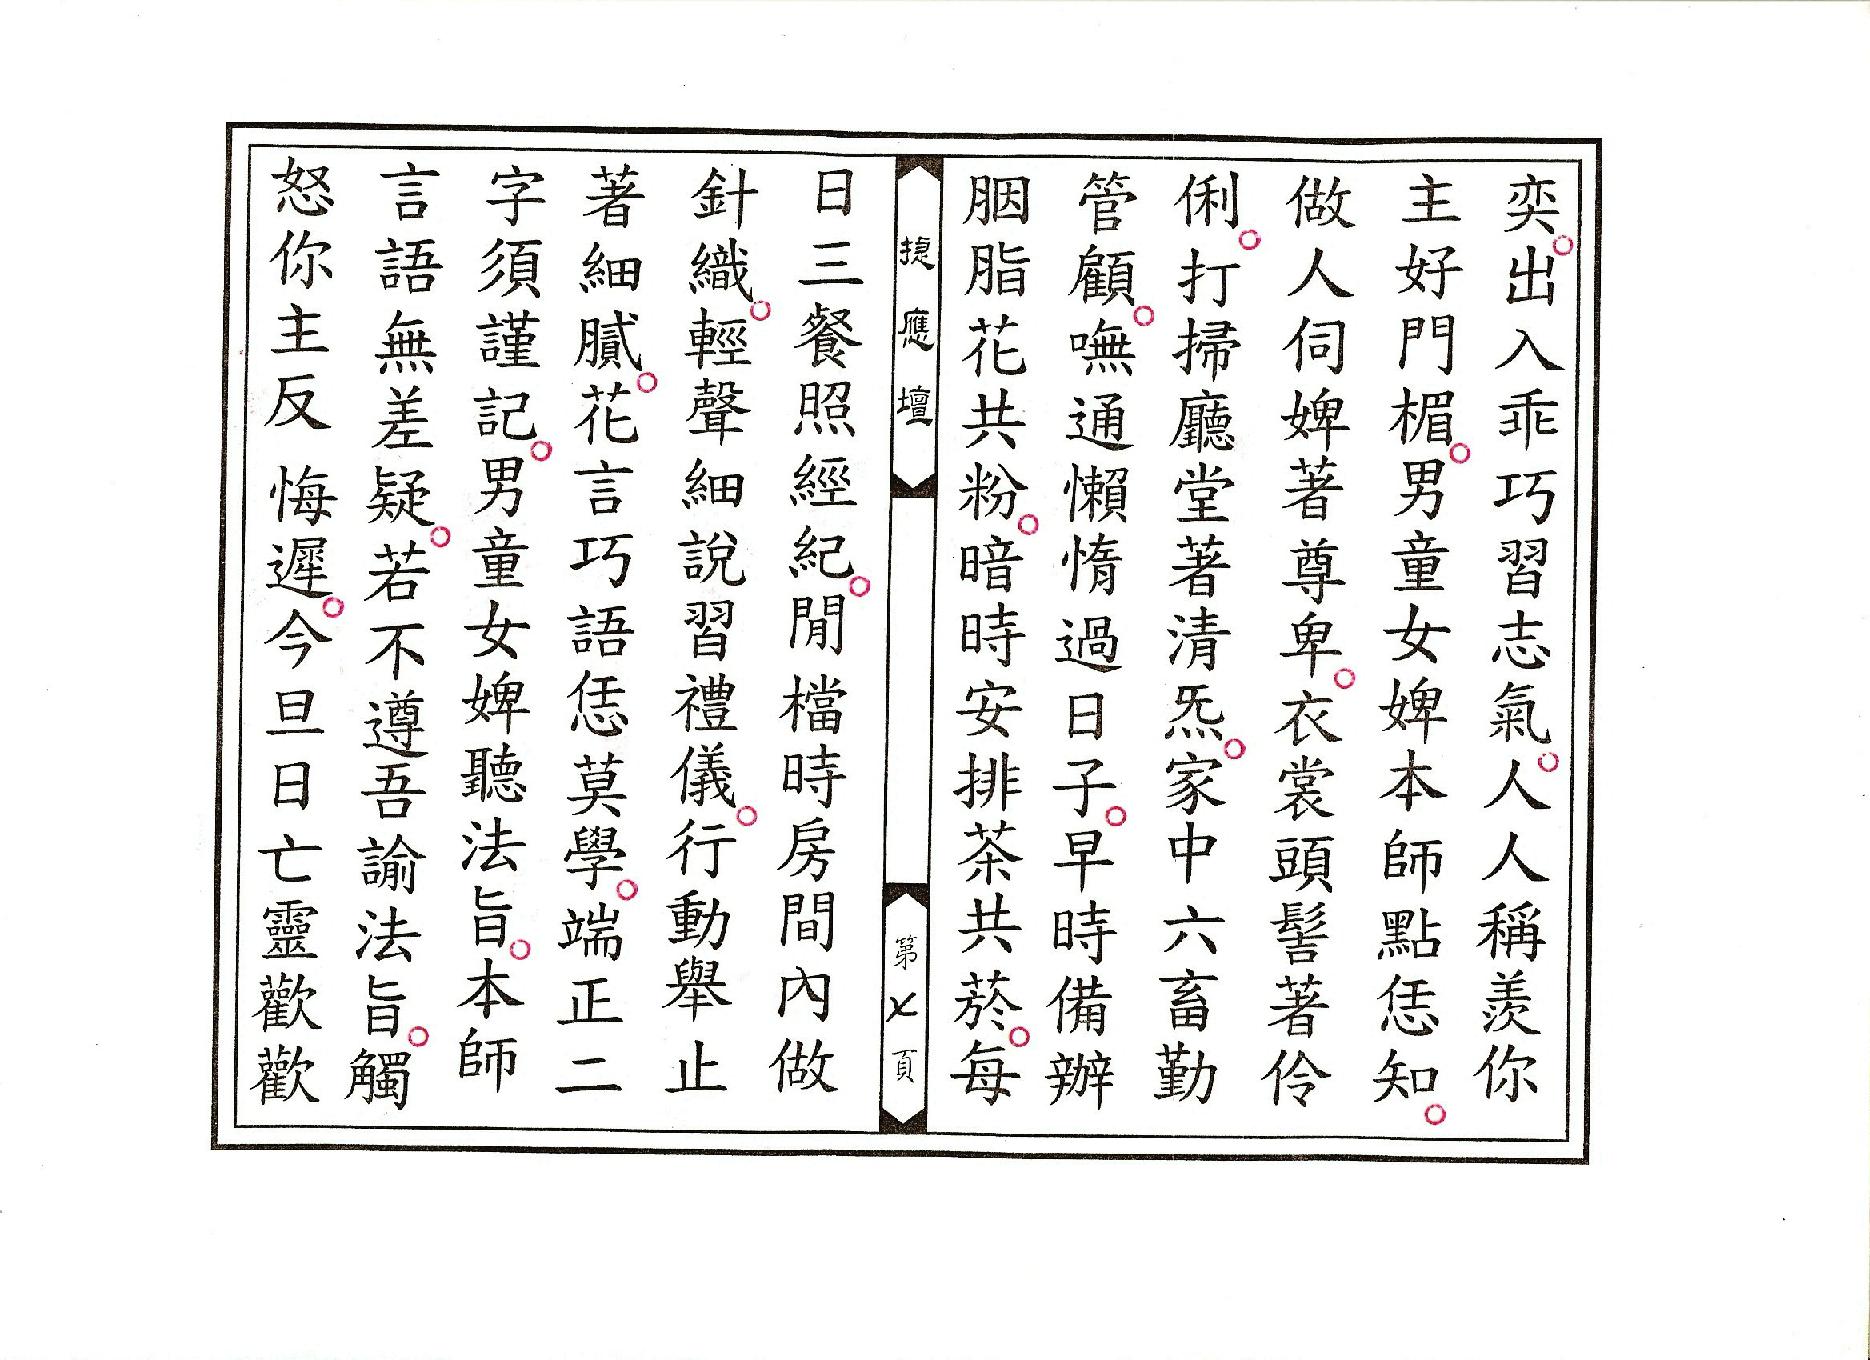 奕。出入乖巧習志氣。人人稱羨你
主好門楣。男童女婢本師點恁知。
做人伺婢著尊卑。衣裳頭髻著伶
俐。打掃廳堂著清炁。家中六畜勤
管顧。嘸通懶惰過日子。早時備辦
胭脂花共粉。暗時安排茶共菸。每
捷應壇
第七頁
日三餐照經紀。閒檔時房間內做
針織。輕聲細說習禮儀。行動舉止
著細膩。花言巧語恁莫學。端正二
字須謹記。男童女婢聽法旨。本師
言語無差疑。若不遵吾諭法旨。觸
怒你主反悔遲。今旦日亡靈歡歡